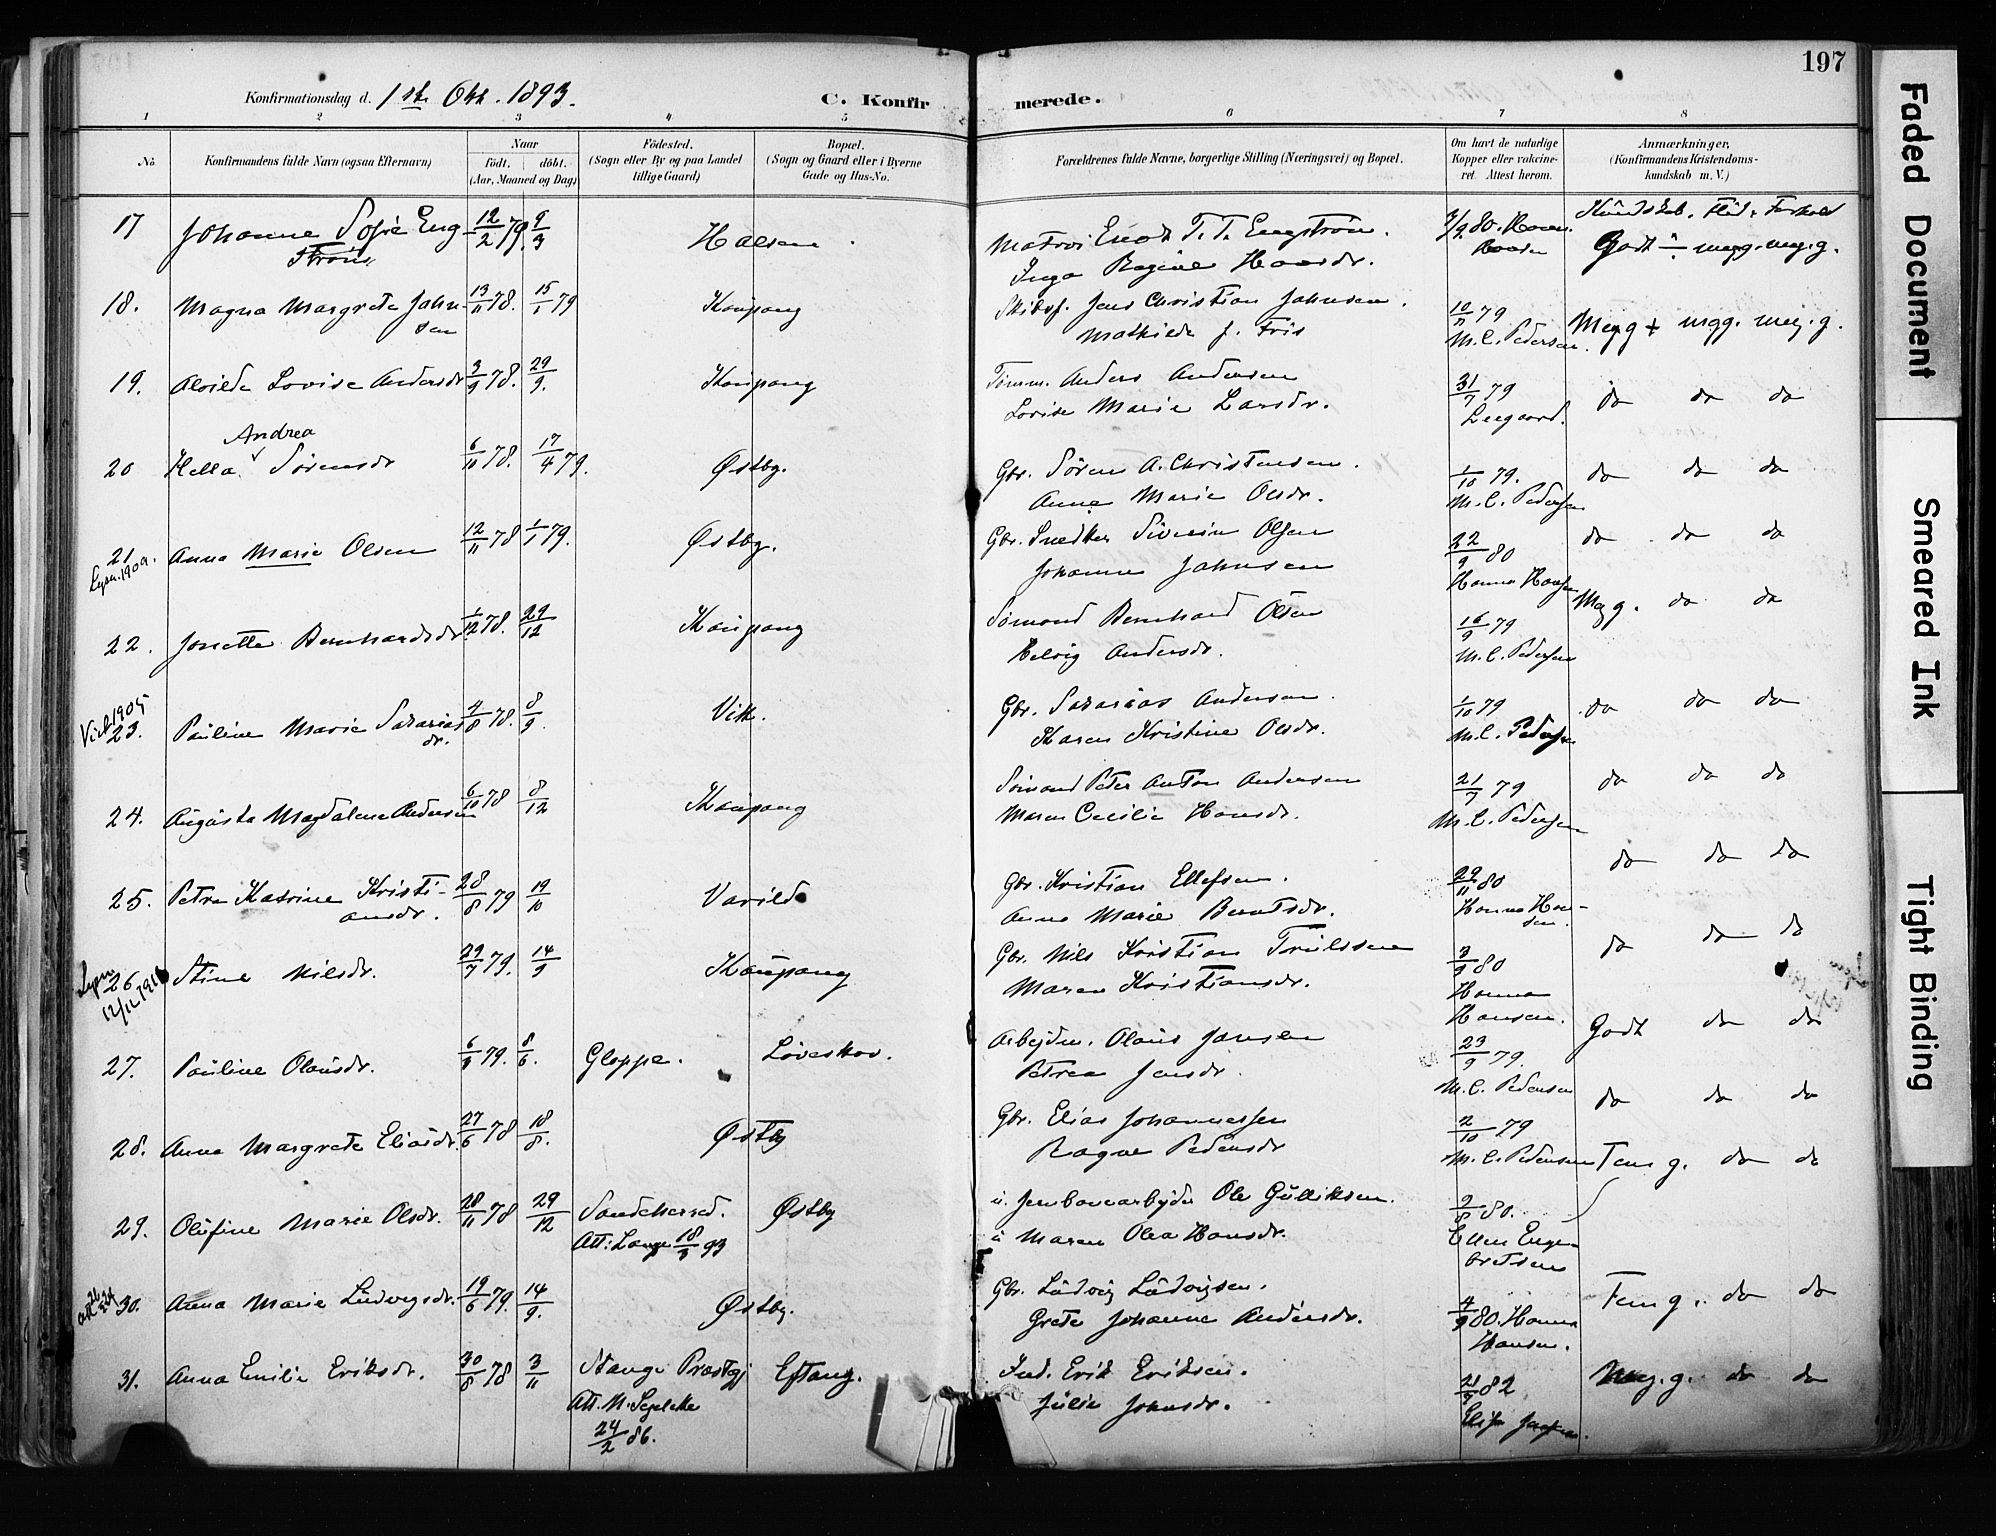 197
Konfirmationsdag d. 1ste Okt. 1893.
C. Konfirmerede.
1 2 3 4 5 6 7 8
No
Konfirmandens fulde Navn (ogsaa Efternavn)
Naar
födt. döbt.
(Aar, Maaned og Dag)
Födested.
(Sogn eller By og paa Landet
tillige Gaard)
Bopæl.
(Sogn og Gaard eller i Byerne
Gade og Hus-No.
Forældrenes fulde Navne, borgerlige Stilling (Næringsvei) og Bopæl.
Om havt de naturlige
Kopper eller vakcine-
ret. Attest herom.
Anmærkninger,
(Konfirmandens Kristendoms-
kundskab m. V.)
Kundskab. Flid. Forhold
17 Johanne Sofie Eng- 12/2 79. 9/3 Halsen Matros Enok T. T. Engström. 3/9 80.
ström Inga Regine Hansdr. Godt ÷ megg. meg. g.
18. Magna Margrete Jahn- 13/11 78. 15/1 79 Kaupang Skibsf. Jens Christian Jahnsen. 10/11 79 Meg g + mgg. meg. g.
sen Mathilde f. Friis M. C. Pedersen.
19. Alvilde Lovise Andersdr 3/9 78. 29/9. Kaupang Tömm. Anders Andersen 31/7 79 do do do
Lovise Marie Larsdr. Leegaard.
Andrea
20 Hella Sörensdr 6/11 78. 17/4 79. Østby. Gbr. Sören A. Christensen. 1/10 79. do do do
Anne Marie Olsdr. M. C. Pedersen
21 Anna Marie Olsen 12/11 78 1/1 79. Østby. Gbr. Snedker Siverin Olsen 22/9 80 do do do
Lysn. 1909. Johanne Jahnsen Hanna Hansen
22. Jonette Bernhardsdr 1/12 78. 29/12 Kaupang Sömand Bernhard Olsen 16/9 79 Meg g. do do
Helvig Andersdr. M. C. Pedersen
Viet 1905
23. Pauline Marie Sakarias- 4/8 78. 8/9. Vik. Gbr. Sakarias Andersen 1/10 79 do do do
dr. Karen Kristine Olsdr. M. C. Pedersen
24. Augusta Magdalene Andersen 6/10 78 8/12 Kaupang Sömand Peter Anton Andersen 21/7 79 do do do
Maren Cecilie Hansdr. M. C. Pedersen
25. Petra Katrine Kristi- 28/8 79 19/10 Varild Gbr. Kristian Ellefsen. 29/11 80 do do do
ansdr. Anne Marie Berntsdr. Hanna Han-
sen.
Lysn
26. Stine Nilsdr. 29/7 79. 14/9 Kaupang Gbr. Nils Kristian Trulssen 3/9 80 do do do
Maren Kristiansdr. Hanna
Hansen.
27. Pauline Olausdr. 6/3 79. 8/6. Gloppe. Löveskov. Arbejder. Olaus Jansen 23/9 79. Godt do do
Petrea Jensdr. M. C. Pedersen
28. Anna Margrete Eliasdr. 27/6 78 18/8. Østby Gbr. Elias Johannessen 2/10 79 do do do
Ragne Pedersdr M. C. Pedersen
29. Olufine Marie Olsdr. 28/11 78 29/12 Sandeherred. Østby u. Jernbanearbejder Ole Gulliksen. 2/8 80. Tem g. do do
Att: Lange 18/9 93 u Maren Olea Hansdr. Ellen Enge-
bretsen
30. Anna Marie Ludvigsdr. 19/6 79. 14/9. Østby. Gbr. Ludvig Ludvigsen. 4/9 80. Hanna Tem g. do do
Grete Johanne Andersdr. Hansen.
31. Anna Emilie Eriksdr. 30/8 78 3/11 Stange Præstgj Eftang. Ind. Erik Eriksen. 21/9 82 Meg. g. do do
Att. M. Segelcke Julie Johnsdr.
24/2 86.
Faded Document
Smeared Ink
Tight Binding